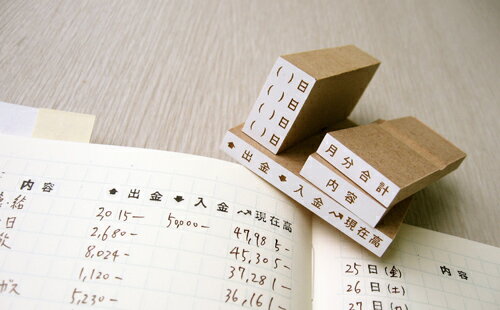 ( )日
( )日
( )日
( )日
月分合計
内容
出金 入金 現在高
内容 出金 入金 現在高
2015- 50,000- 47,985-
日 2,680- 45,305-
8,024- 37,281-
1,120- 36,161-
ガス 5,230-
内容
25日(金)
26日(土)
27日